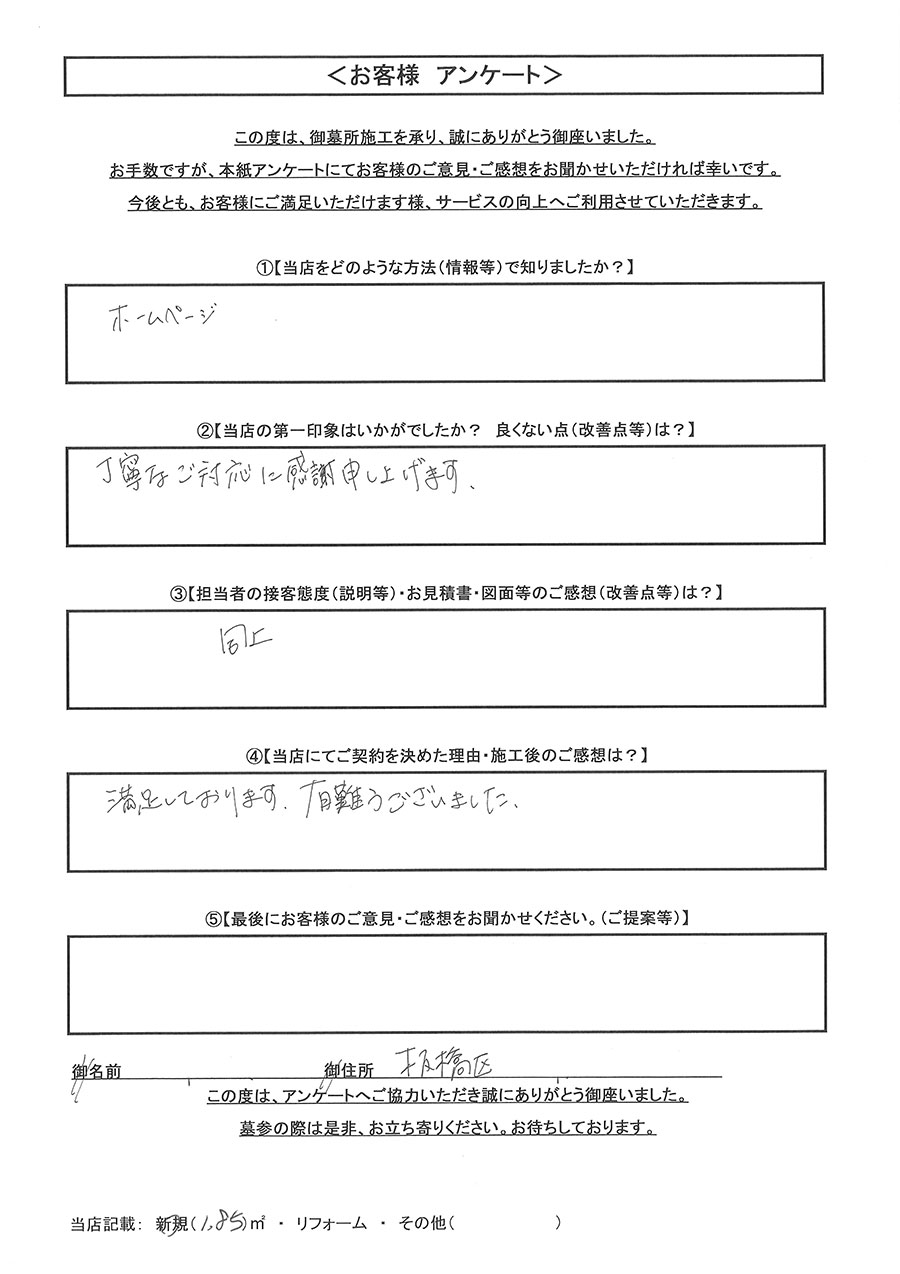 ＜お客様 アンケート＞
この度は、御墓所施工を承り、誠にありがとう御座いました。
お手数ですが、本紙アンケートにてお客様のご意見・ご感想をお聞かせいただければ幸いです。
今後とも、お客様にご満足いただけます様、サービスの向上へご利用させていただきます。
①【当店をどのような方法（情報等）で知りましたか？】
ホームページ
②【当店の第一印象はいかがでしたか？ 良くない点（改善点等）は？】
丁寧なご対応に感謝申し上げます。
③【担当者の接客態度（説明等）・お見積書・図面等のご感想（改善点等）は？】
同上
④【当店にてご契約を決めた理由・施工後のご感想は？】
満足しております。有難うございました。
⑤【最後にお客様のご意見・ご感想をお聞かせください。（ご提案等）】
御名前 御住所 板橋区
この度は、アンケートへご協力いただき誠にありがとう御座いました。
墓参の際は是非、お立ち寄りください。お待ちしております。
当店記載： 新規（1.85）㎡ ・ リフォーム ・ その他（ ）